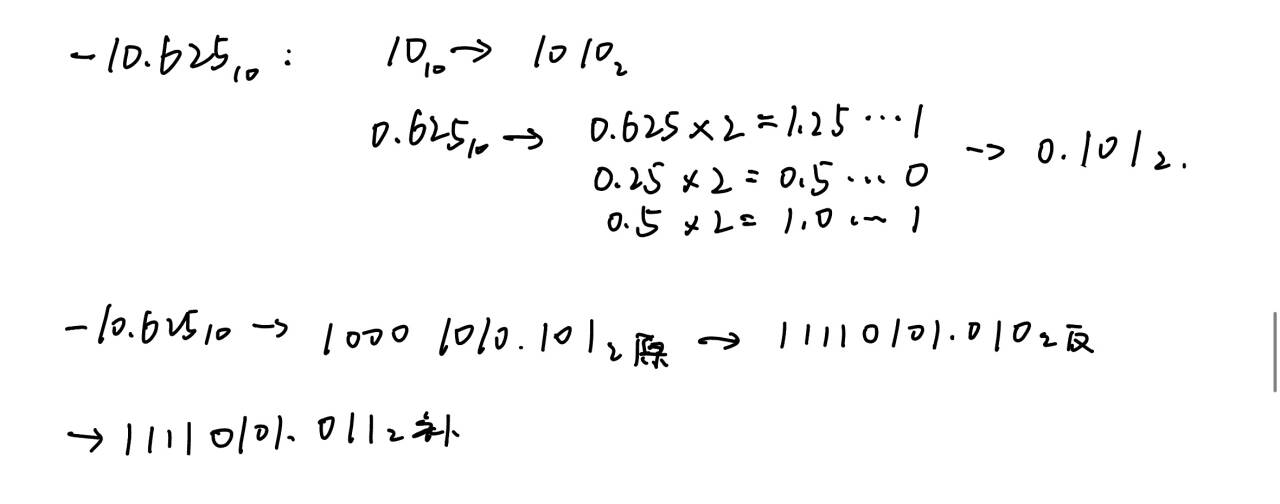 -10.625₁₀ : 10₁₀ → 1010₂
0.625₁₀ → 0.625 × 2 = 1.25 … 1 → 0.101₂.
0.25 × 2 = 0.5 … 0
0.5 × 2 = 1.0 … 1
-10.625₁₀ → 1000 1010.101₂原 → 11110101.010₂反
→ 11110101.011₂补